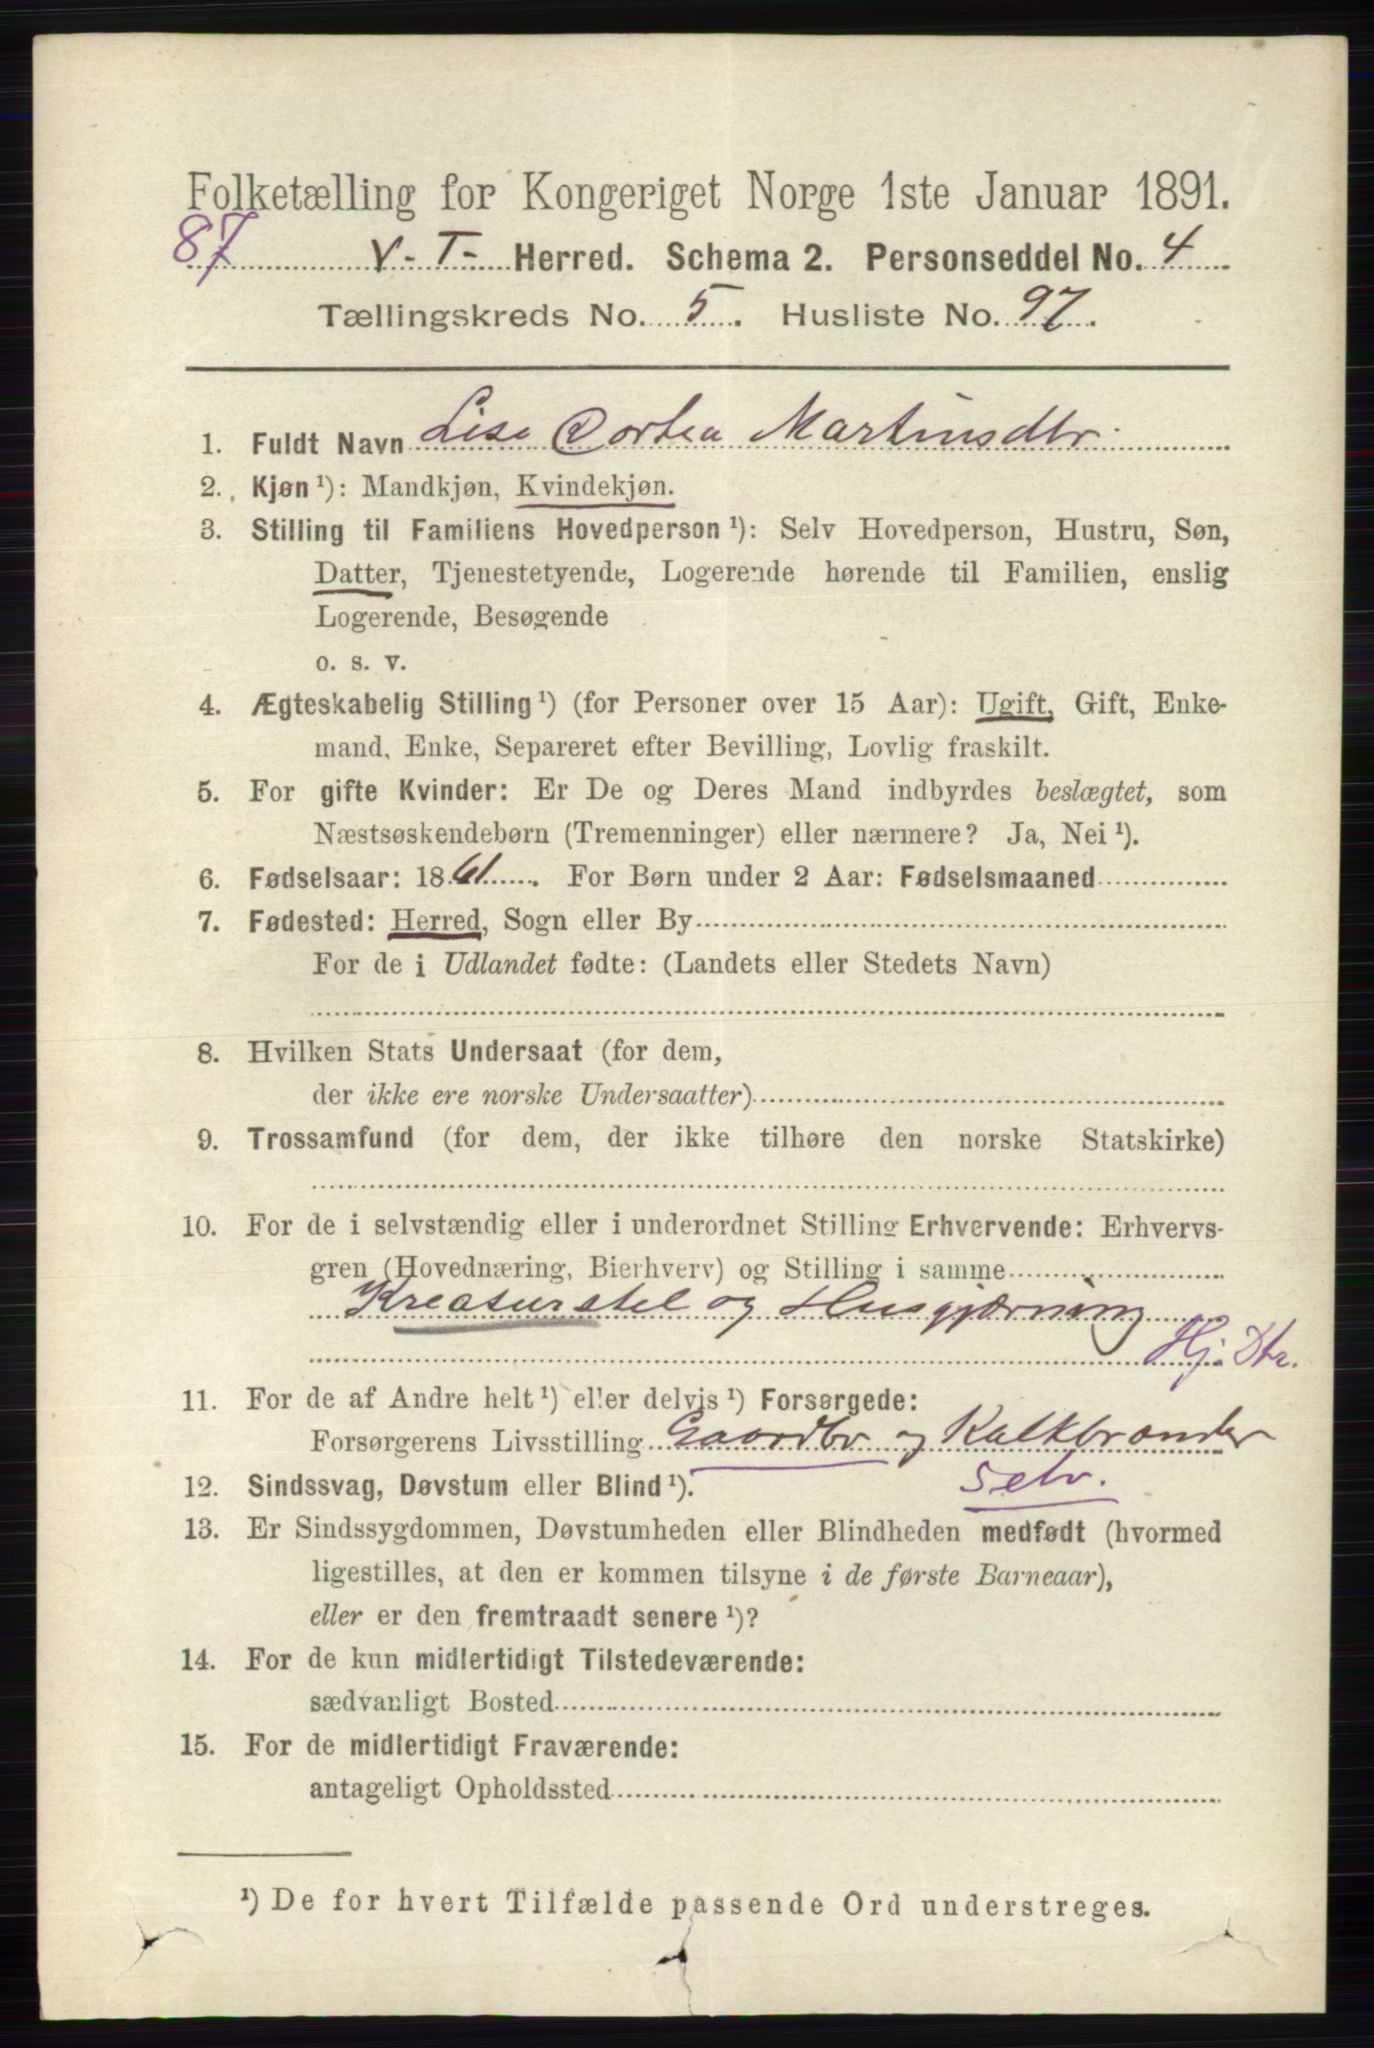 Folketælling for Kongeriget Norge 1ste Januar 1891.
87 V.-T- Herred. Schema 2. Personseddel No. 4
Tællingskreds No. 5. Husliste No. 97.
1. Fuldt Navn Lise Dortea Martinsdtr.
2. Kjøn ¹): Mandkjøn, Kvindekjøn.
3. Stilling til Familiens Hovedperson ¹): Selv Hovedperson, Hustru, Søn,
Datter, Tjenestetyende, Logerende hørende til Familien, enslig
Logerende, Besøgende
o. s. v.
4. Ægteskabelig Stilling ¹) (for Personer over 15 Aar): Ugift, Gift, Enke-
mand, Enke, Separeret efter Bevilling, Lovlig fraskilt.
5. For gifte Kvinder: Er De og Deres Mand indbyrdes beslægtet, som
Næstsøskendebørn (Tremenninger) eller nærmere? Ja, Nei ¹).
6. Fødselsaar: 1861. For Børn under 2 Aar: Fødselsmaaned
7. Fødested: Herred, Sogn eller By
For de i Udlandet fødte: (Landets eller Stedets Navn)
8. Hvilken Stats Undersaat (for dem,
der ikke ere norske Undersaatter)
9. Trossamfund (for dem, der ikke tilhøre den norske Statskirke)
10. For de i selvstændig eller i underordnet Stilling Erhvervende: Erhvervs-
gren (Hovednæring, Bierhverv) og Stilling i samme
Kreaturstel og Husgjærning
Hj. Dtr.
11. For de af Andre helt ¹) eller delvis ¹) Forsørgede:
Forsørgerens Livsstilling Gaardbr og Kalkbrander
12. Sindssvag, Døvstum eller Blind ¹). Selv.
13. Er Sindssygdommen, Døvstumheden eller Blindheden medfødt (hvormed
ligestilles, at den er kommen tilsyne i de første Barneaar),
eller er den fremtraadt senere ¹)?
14. For de kun midlertidigt Tilstedeværende:
sædvanligt Bosted
15. For de midlertidigt Fraværende:
antageligt Opholdssted
¹) De for hvert Tilfælde passende Ord understreges.